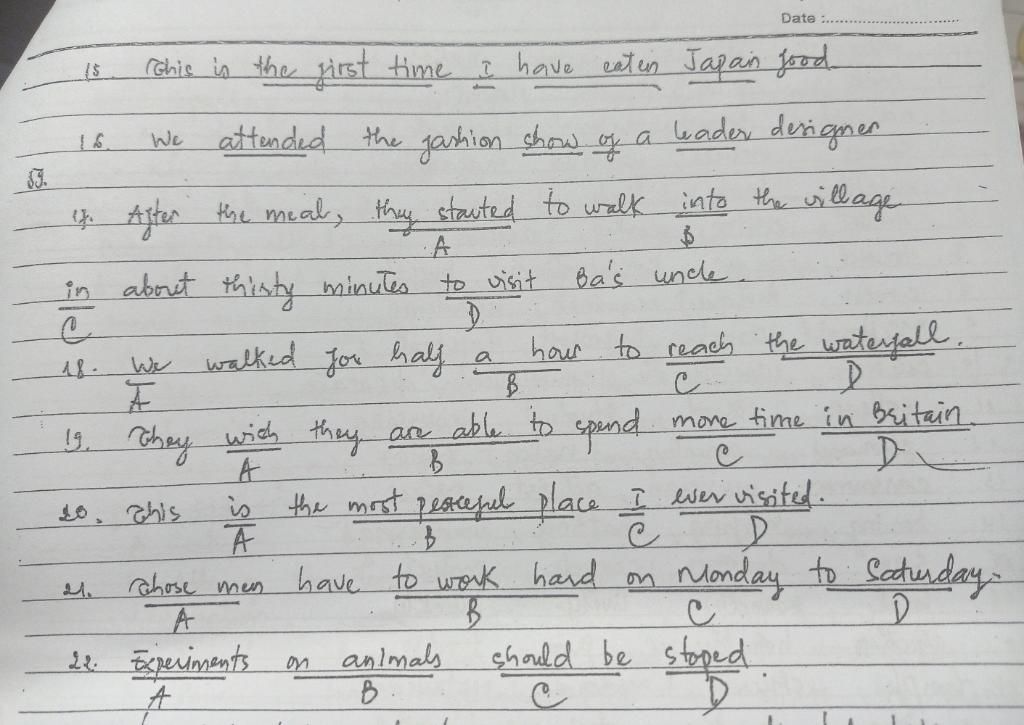 Date :................................
15 This is the first time I have eaten Japan food
16. We attended the fashion show of a leader designer
59.
17. After the meal, they started to walk into the village
A B
in about thirty minutes to visit Ba's uncle.
C D
18. We walked for half a hour to reach the waterfall.
A B C D
19. They wich they are able to spend more time in Britain
A B C D
20. This is the most peaceful place I ever visited.
A B C D
21. Those men have to work hard on Monday to Saturday.
A B C D
22. Experiments on animals should be stoped.
A B C D